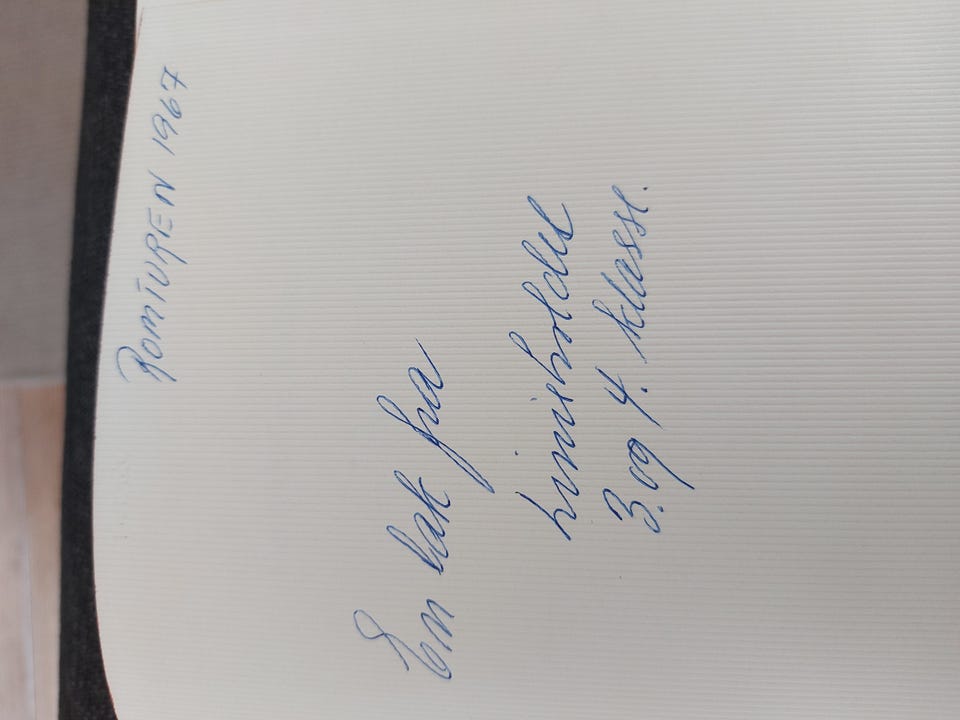 ROMTUREN 1967
En tak fra
3. og 4. klasse.